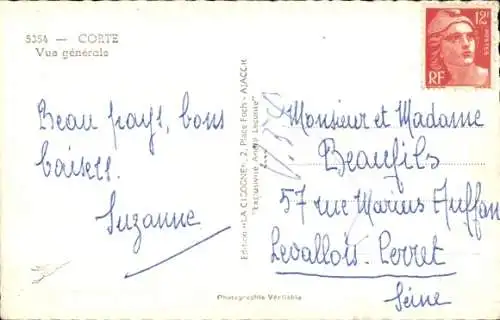 5354 — CORTE
Vue générale
Beau pays, bons
baisers.
Suzanne
Edition "LA CIGOGNE", 2, Place Foch - AJACCIO
"Exclusivité André Leconte"
12F
POSTES
RF
Monsieur et Madame
Beaufils
57 rue Marius Auffan
Levallois-Perret
Seine
Photographie Véritable